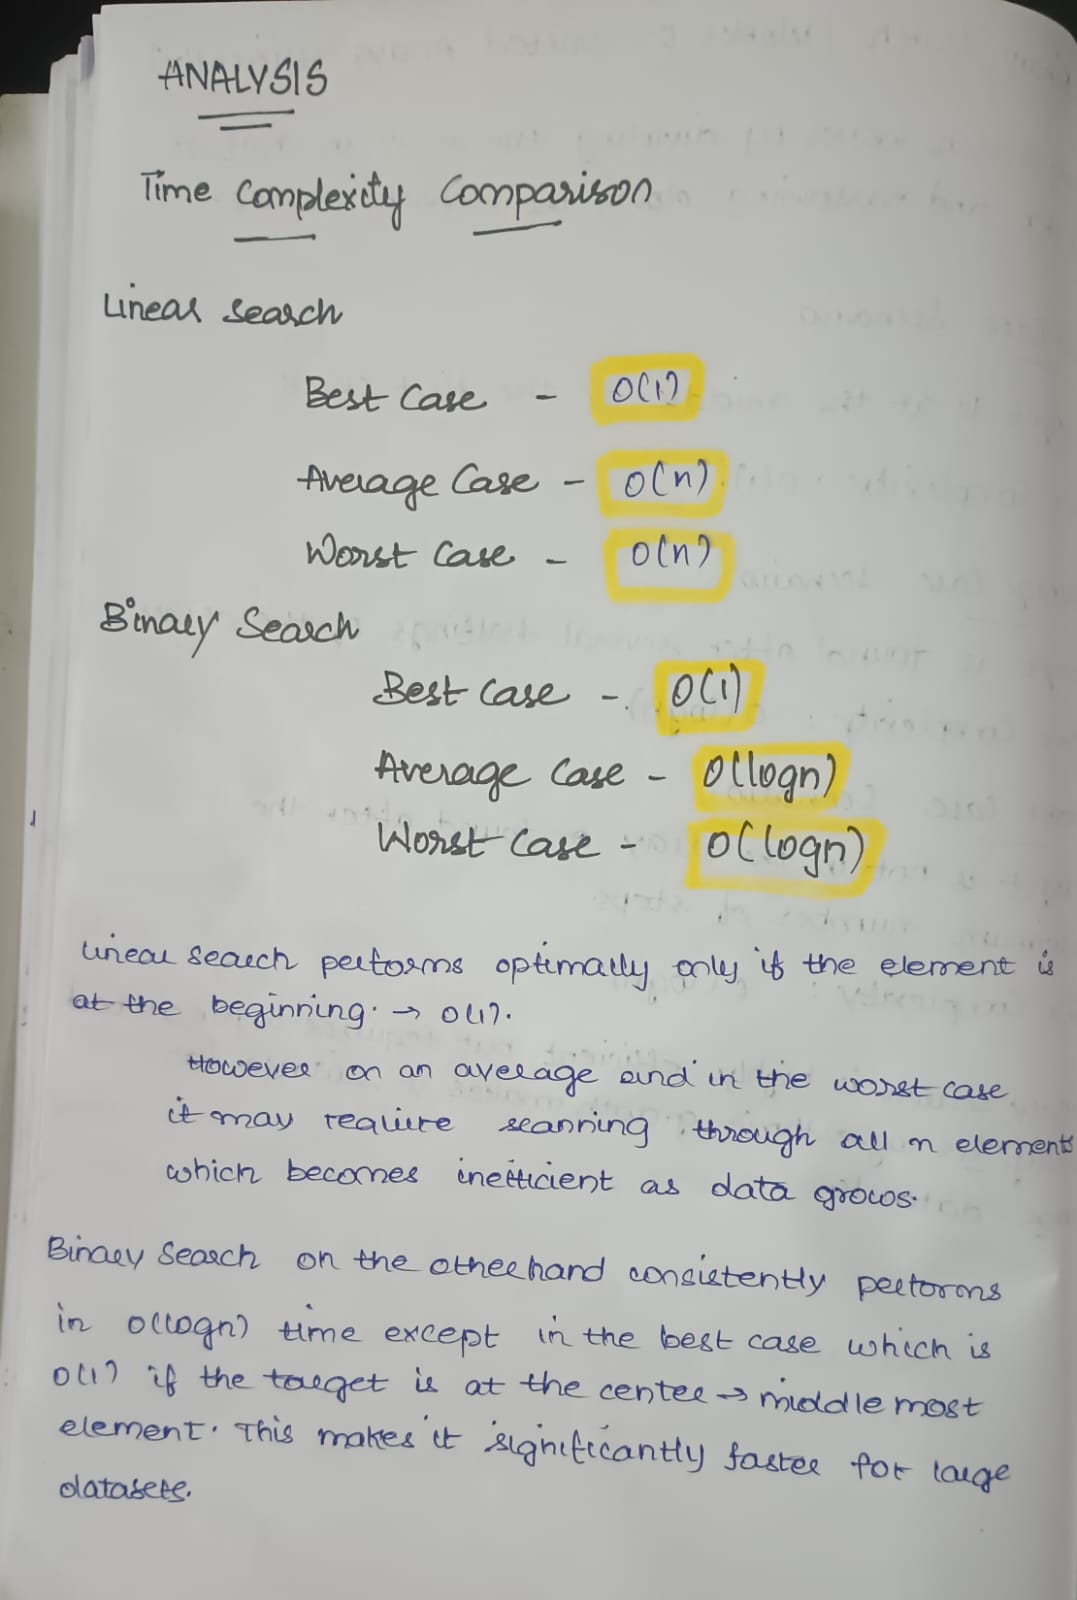 ANALYSIS
Time Complexity Comparison
Linear search
Best Case - O(1)
Average Case - O(n)
Worst Case - O(n)
Binary Search
Best Case - O(1)
Average Case - O(logn)
Worst Case - O(logn)
Linear search performs optimally only if the element is
at the beginning. → O(1).
However on an average and in the worst case
it may require scanning through all n elements
which becomes inefficient as data grows.
Binary Search on the otherhand consistently performs
in O(logn) time except in the best case which is
O(1) if the target is at the center → middle most
element. This makes it significantly faster for large
datasets.